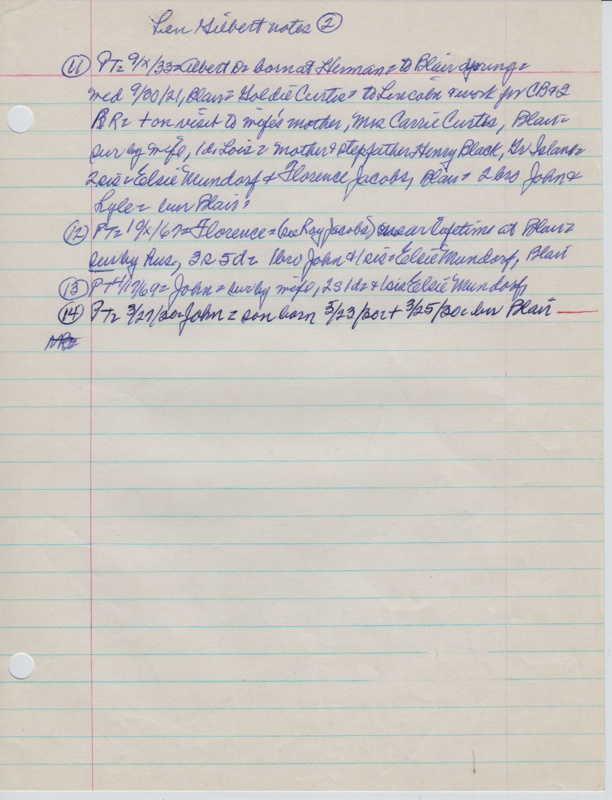 Len Gilbert notes ②
⑪ PT= 9/X/33=Albert D= born at Herman= to Blair young=
med 9/30/21, Blair= Goldie Curtis= to Lincoln & work for CB&Q
RR= + on visit to wife's mother, Mrs Carrie Curtis, Blair=
sur by wife, 1d Lois= mother & stepfather Henry Black, Gr Island=
2 sis=Elsie Mundorf & Florence Jacobs, Blair= 2 bros John &
Lyle= bur Blair=
⑫ PT= 19/X/67=Florence=(see Ray Jacobs) lifetime at Blair=
sur by hus, 3s 5d= 1bro John & 1 sis=Elsie Mundorf, Blair
⑬ PT 4/17/69= John= sur by wife, 2s 1d= & 1 sis Elsie Mundorf,
⑭ PT= 3/27/30=John= son born 3/23/30= + 3/25/30= bur Blair